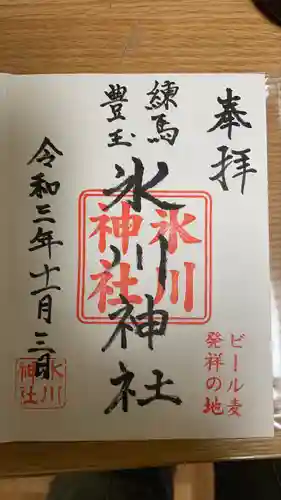 奉拝
練馬
豊玉
氷川神社
氷川
神社
ビール麦
発祥の地
令和三年十一月三日
氷川
神社